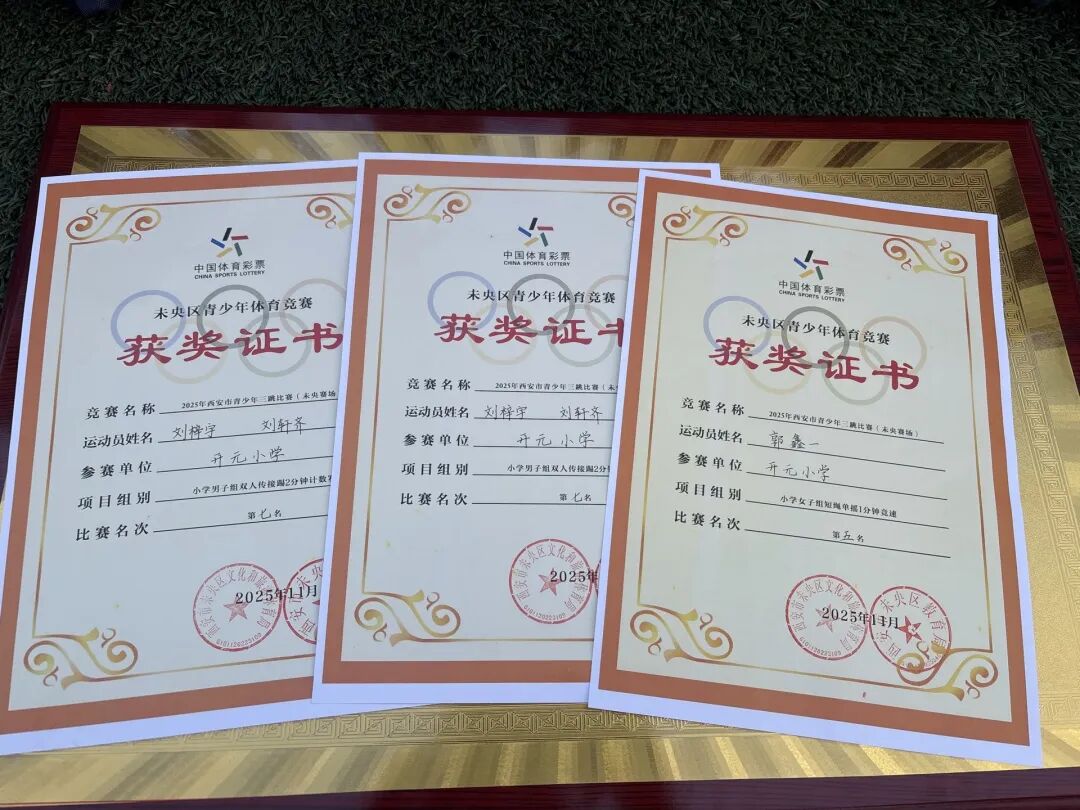 中国体育彩票
CHINA SPORTS LOTTERY
未央区青少年体育竞赛
获奖证书
竞赛名称 2025年西安市青少年三跳比赛(未央赛场
运动员姓名 刘梓宇 刘轩齐
参赛单位 开元小学
项目组别 小学男子组双人传接踢2分钟计数赛
比赛名次 第七名
2025年11月
西安市未央区文化和旅游体育局
中国体育彩票
CHINA SPORTS LOTTERY
未央区青少年体育竞赛
获奖证书
竞赛名称 2025年西安市青少年三跳比赛(未央
运动员姓名 刘梓宇 刘轩齐
参赛单位 开元小学
项目组别 小学男子组双人传接踢2分
比赛名次 第七名
2025年
西安市未央区文化和旅游体育局
中国体育彩票
CHINA SPORTS LOTTERY
未央区青少年体育竞赛
获奖证书
竞赛名称 2025年西安市青少年三跳比赛(未央赛场)
运动员姓名 郭鑫一
参赛单位 开元小学
项目组别 小学女子组短绳单摇1分钟竞速
比赛名次 第五名
2025年11月
西安市未央区文化和旅游体育局
西安市未央区教育局